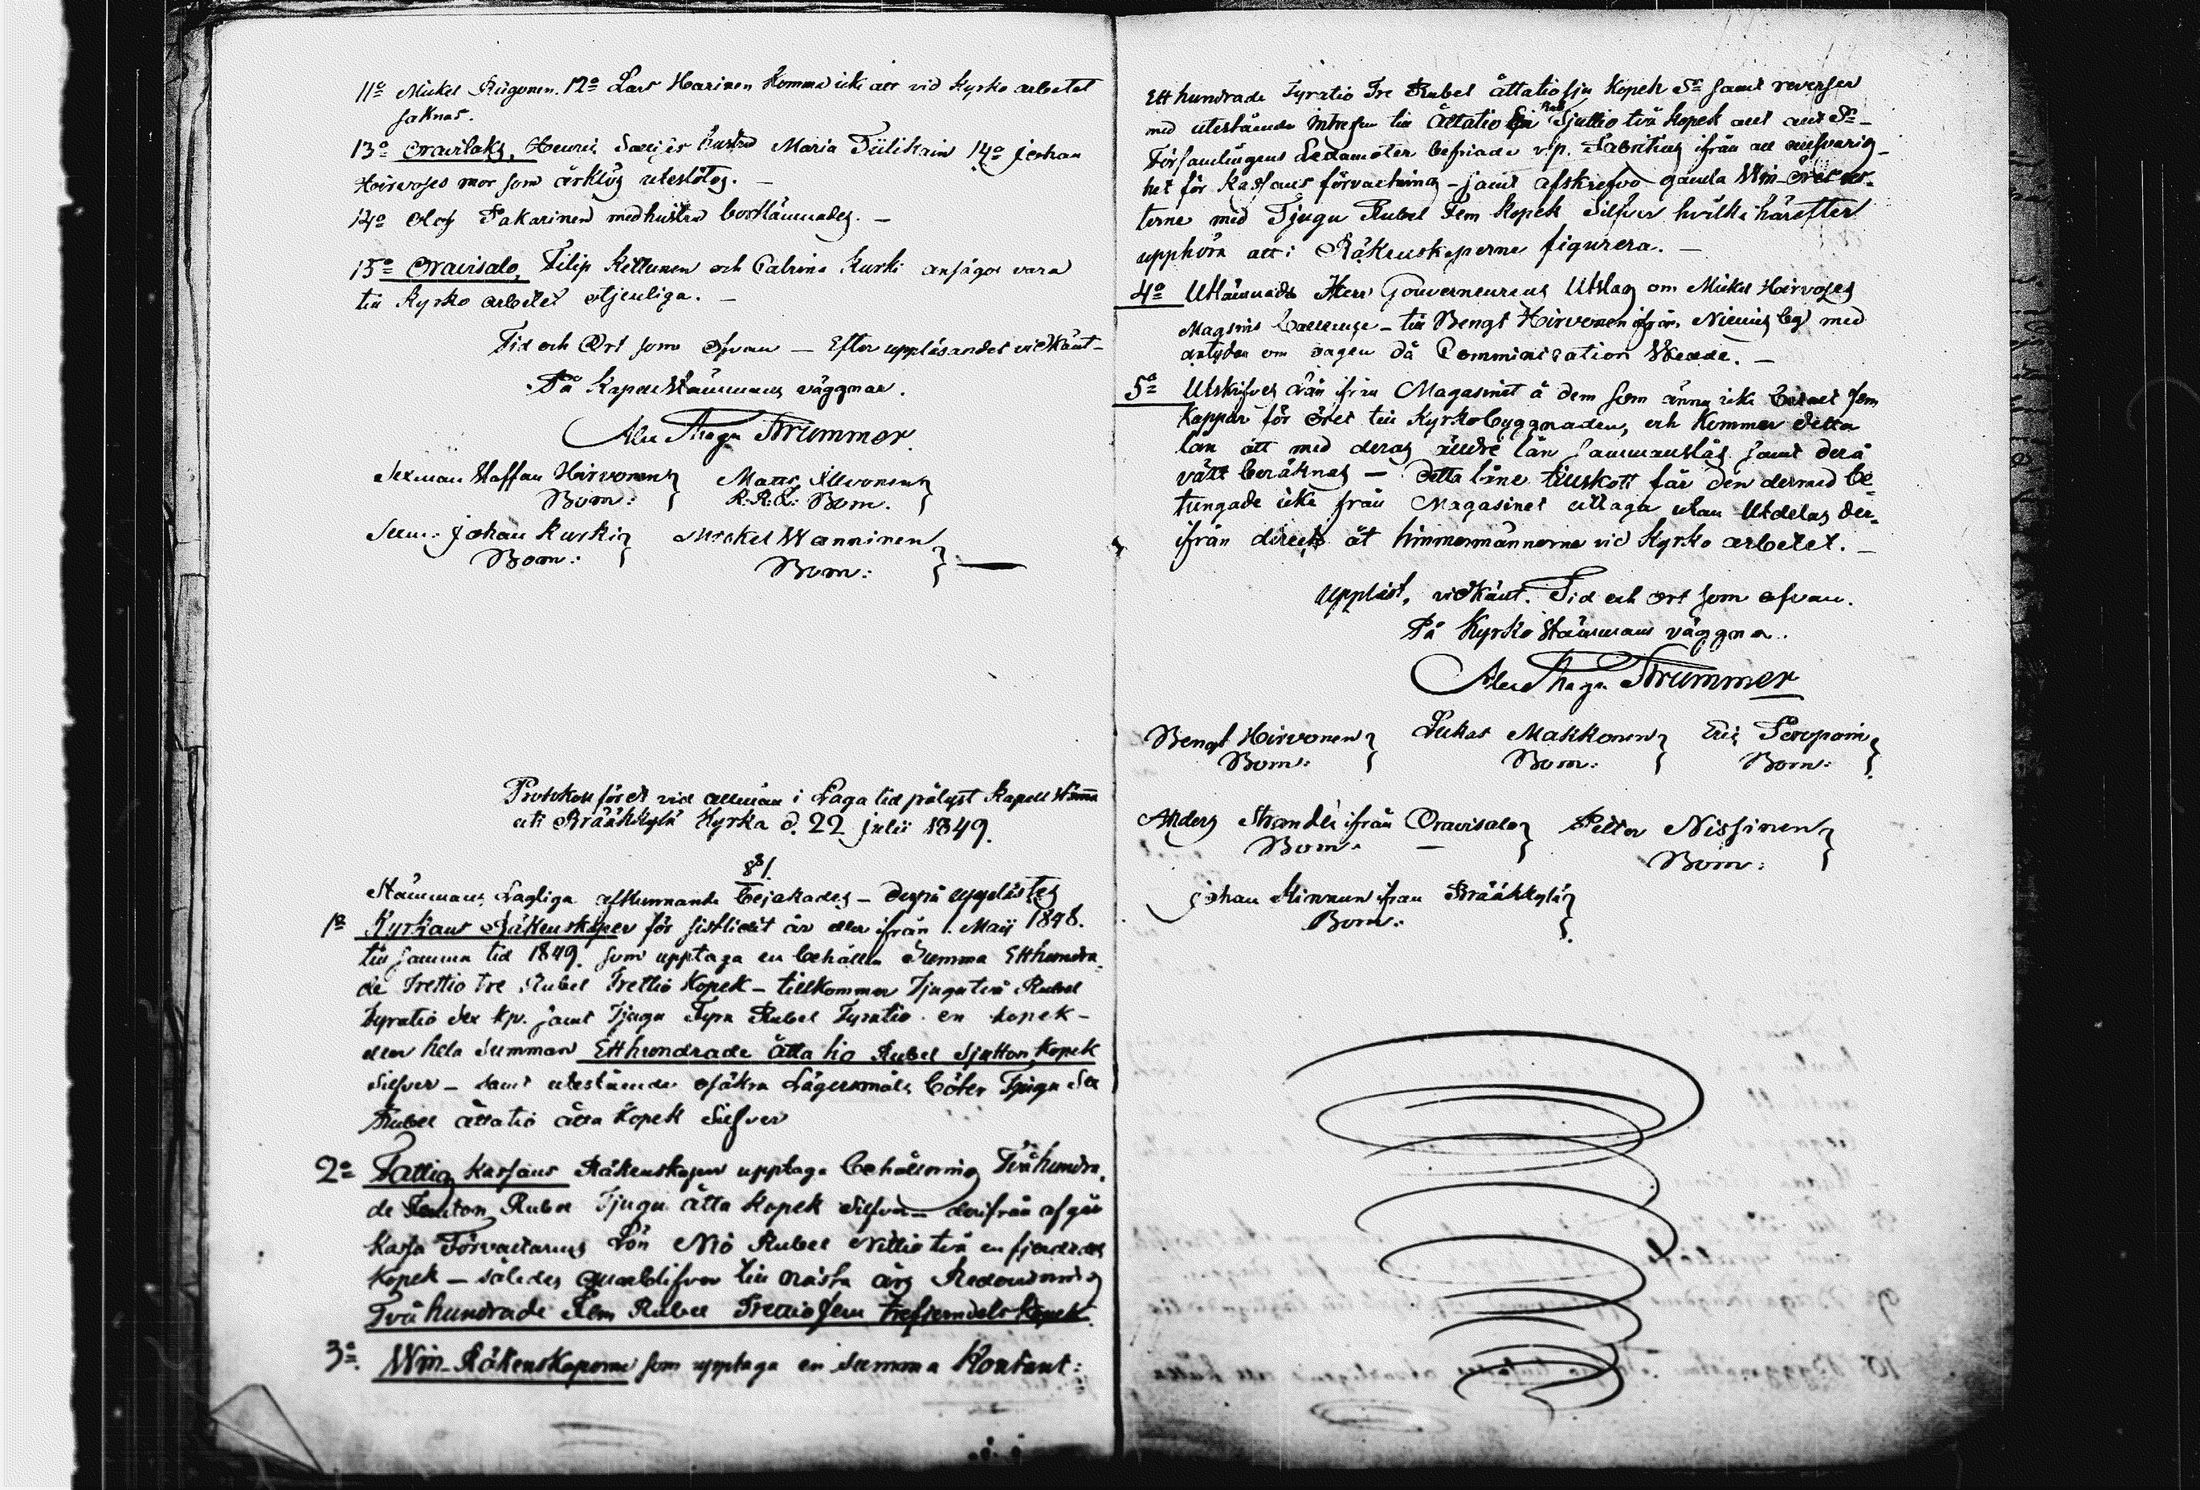 11o Mickel Riigonen. 12o Lars Harinen Kommo icke att vid Kyrko arbetet
saknas.
13o Oravilaks, Henric hustru Maria Tiilikain 14o Johan
Hirvoses mor som utestötes. —
14o Olof Pakarinen med hustru bortlämnades. —
15o Oravisalo, Filip Kettunen och Catrina Kurki ansågos vara
till Kyrko arbetet otjenliga. —
Tid och Ort som Ofvan — Efter uppläsandet vidkänt —
På Kapell Stämmans väggnar.
Alex Thoga Strummer
Sexman Staffan Hirvonens
Bom:
Matts Ilevonens
R.R.L. Bom.
Johan Kurkis
Bom:
Mickel Wanninen
Bom:
Protokoll fördt vid allmän i Laga tid pålyst Kapell Stämma
uti Bräkkylä Kyrka d. 22 julii 1849.
§ 1.
Stämmans Lagliga afkunnande bejakades — derpå upplästes
1o Kyrkans Räkenskaper för sistlidit år eller ifrån 1. Maij 1848.
till samma tid 1849. som upptaga en behållen Summa Etthundra
de Trettio tre Rubel Trettio Kopek — tillkommer Tjugutvå Rubel
fyratio sex kp. samt Tjugu Fyra Rubel Fyratio en kopek —
eller hela Summan Etthundrade åtta tio Rubel Sjutton Kopek
Silfver — samt utestående osäkra Lägersmåls böter Tjugu Sex
Rubel åttatio åtta Kopek Silfver
2o Fattig Kassans Räkenskaper upptaga behållning Tvåhundra
de Femton Rubel Tjugu åtta Kopek Silfver — derifrån afgår
Kassa Förvaltarens Lön Nio Rubel Nittio två en fjerdedels
Kopek — således qvarblifver till nästa års Redovisning
Två hundrade Fem Rubel Trettiofem trefjerndels Kopek.
3o. Win-Räkenskaperne som upptaga en Summa Kontant:
Ett hundrade Fyratio Tre Rubel åttatiosju Kopek Sr samt reverser
med utestående intressen till Åttatio Rub Sjuttio två Kopek allt Sr —
Församlingens Ledamöter befriade v.p. Fabritius ifrån all ansvarig-
het för Kassans förvaltning — samt afskrefvo gamla Win
terne med Tjugu Rubel Fem Kopek Silfver hvilka härefter
upphöra att i Räkenskaperne figurera. —
4o Utlämnades Herr Gouverneurens Utslag om Mickel Hirvoses
Magasins — till Bengt Hirvonen ifrån Niemis by med
antydan om dagen då Commination skedde. —
5o Utskrifves Lån ifrån Magasinet å dem som ännu icke betalt fem
Kappar för året till Kyrkobyggnaden, och Kommer detta
lån att med deras äldre lån sammanslås samt derå
växt beräknas — Detta låne tillskott får den dermed be-
tungade icke från Magasinet uttaga utan Utdelas der-
ifrån direct åt timmermännerne vid Kyrko arbetet. —
Uppläst, vidkänt. Tid och ort som ofvan.
På Kyrko Stämmans väggna.
Alex Thoga Strummer
Bengt Hirvonen
Bom:
Lukas Makkonen
Bom:
Eric
Bom:
Anders ifrån Oravisalo
Bom:
Petter Nissinen
Bom:
Johan Hirvonen ifrån Bräkkylä
Bom: